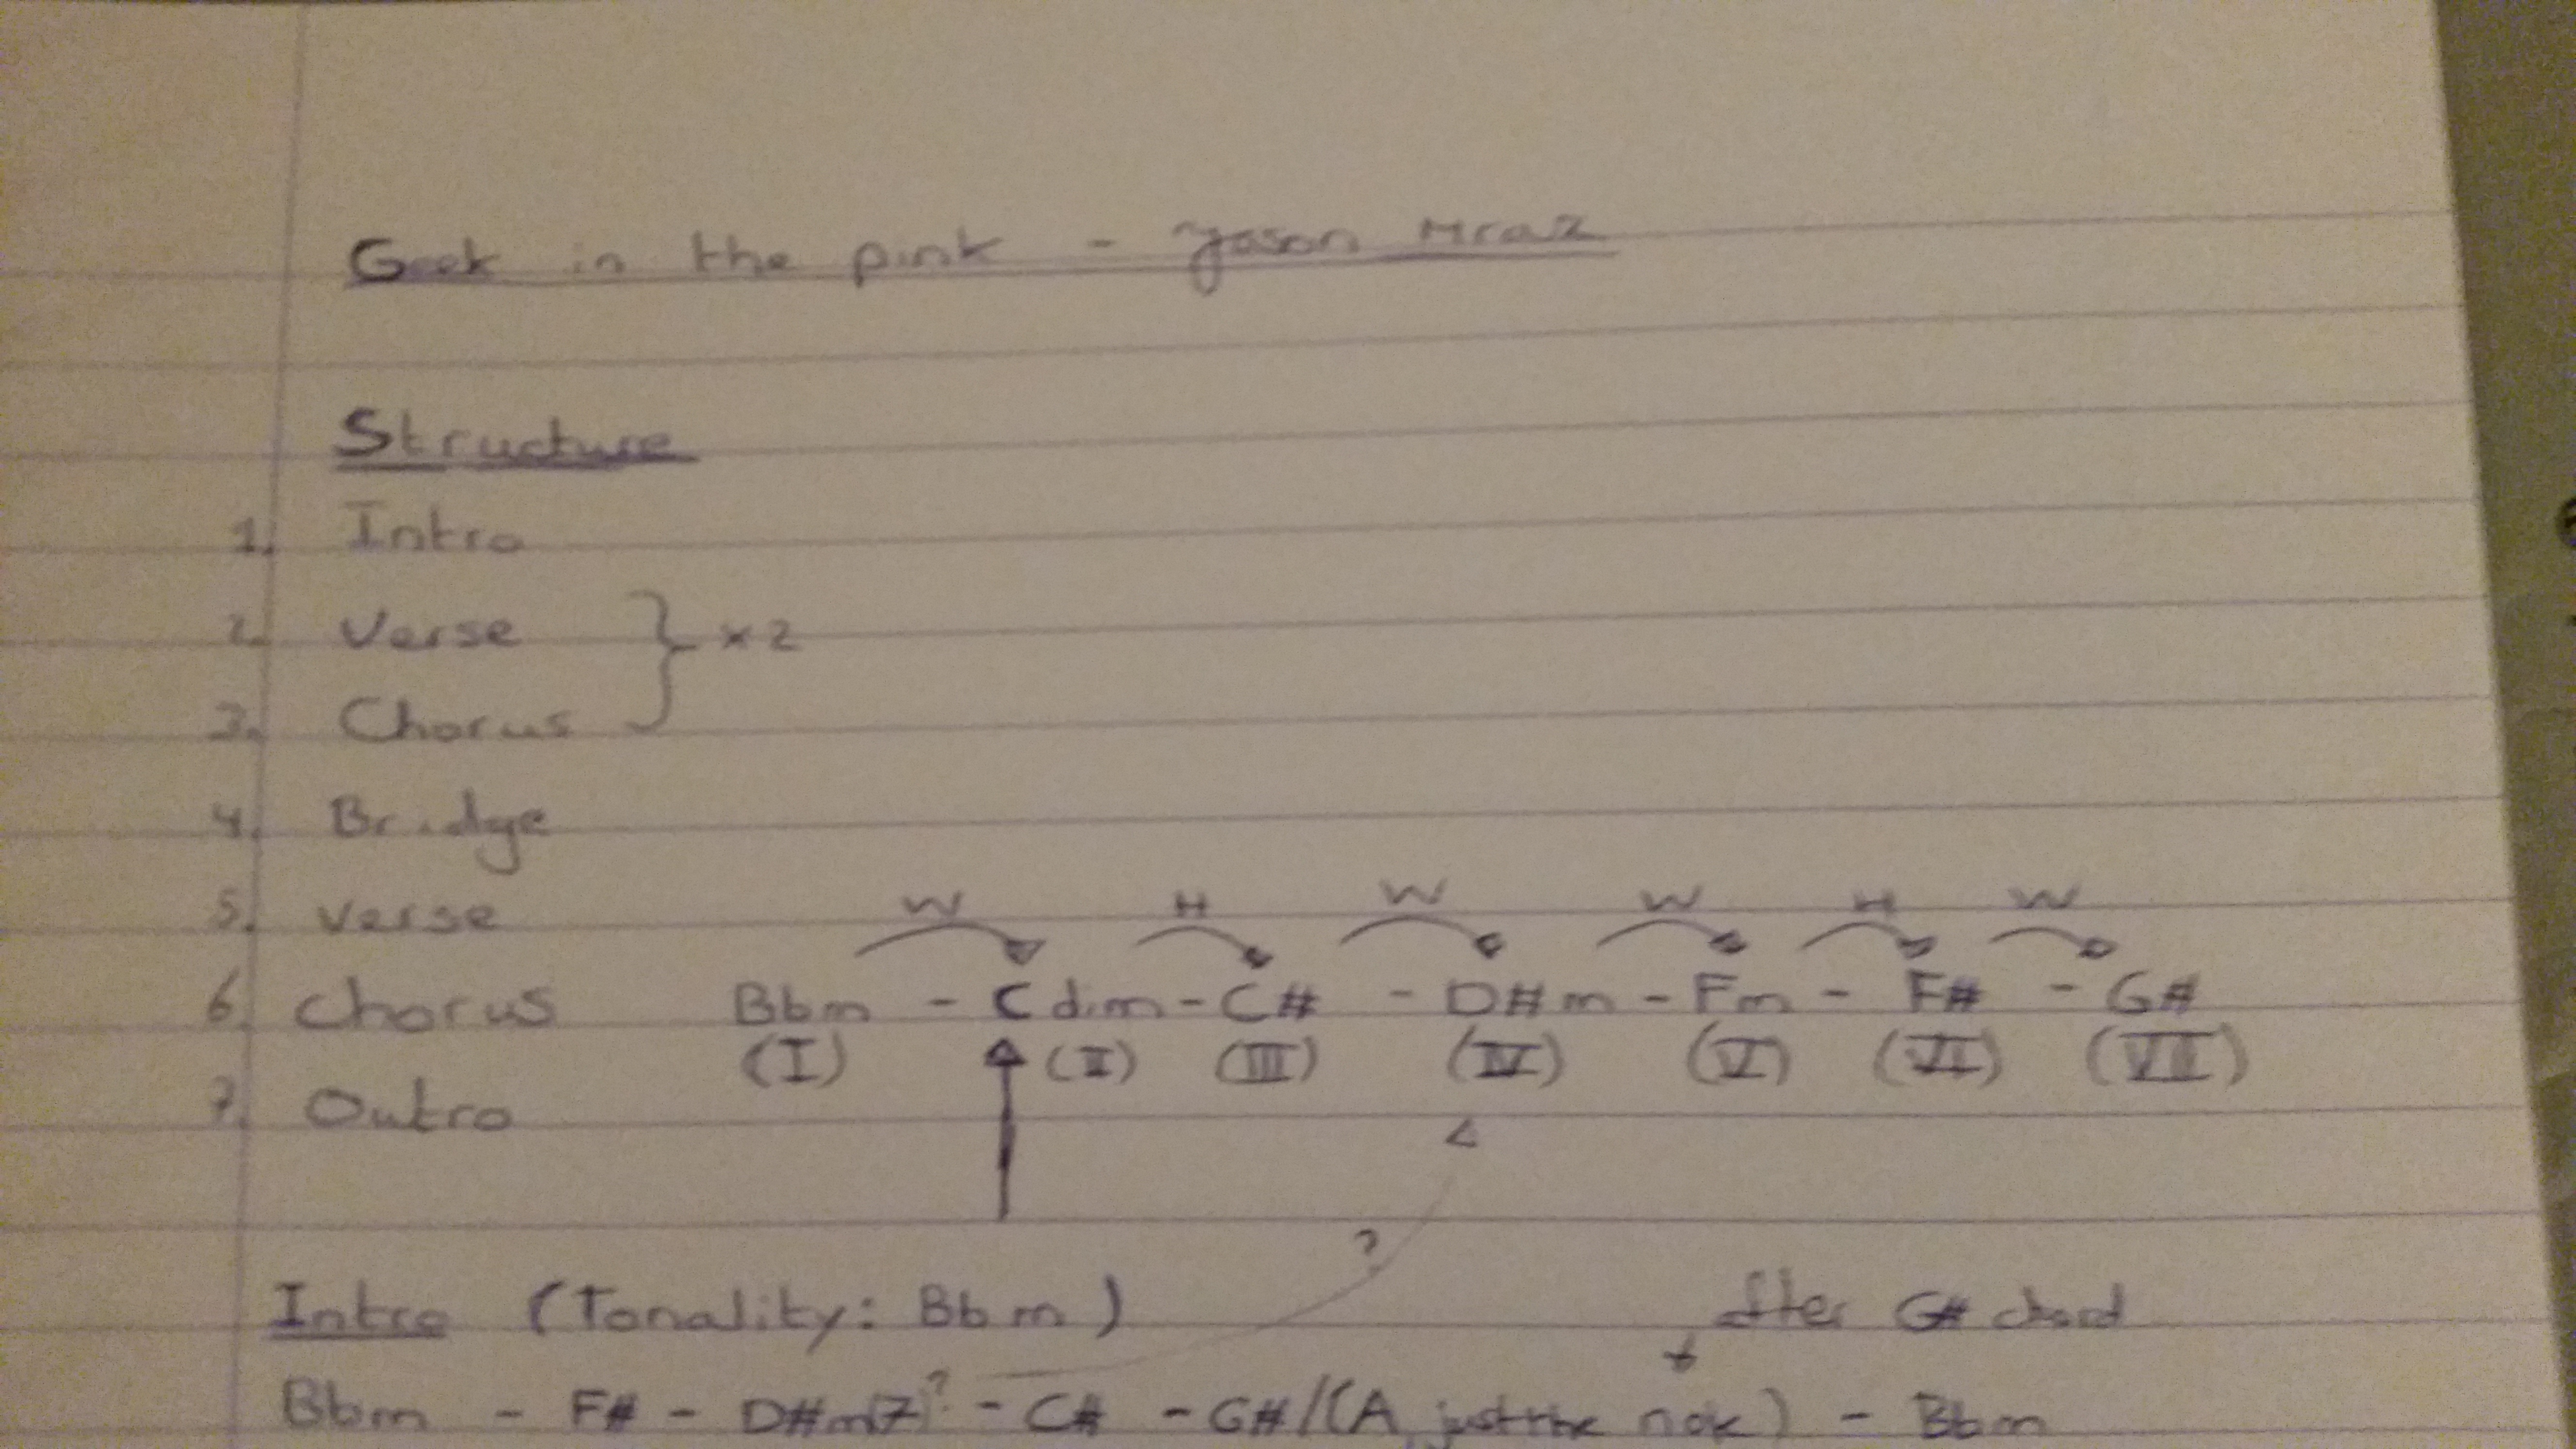 Geek in the pink - Jason Mraz
Structure
1. Intro
2. Verse } x2
3. Chorus
4. Bridge
5. Verse
W H W W H W
6. Chorus Bbm - Cdim - C# - D#m - Fm - F# - G#
(I) (II) (III) (IV) (V) (VI) (VII)
7. Outro
?
Intro (Tonality: Bbm) After G# chord
Bbm - F# - D#m(7)? - C# - G#/(A, just the note) - Bbm